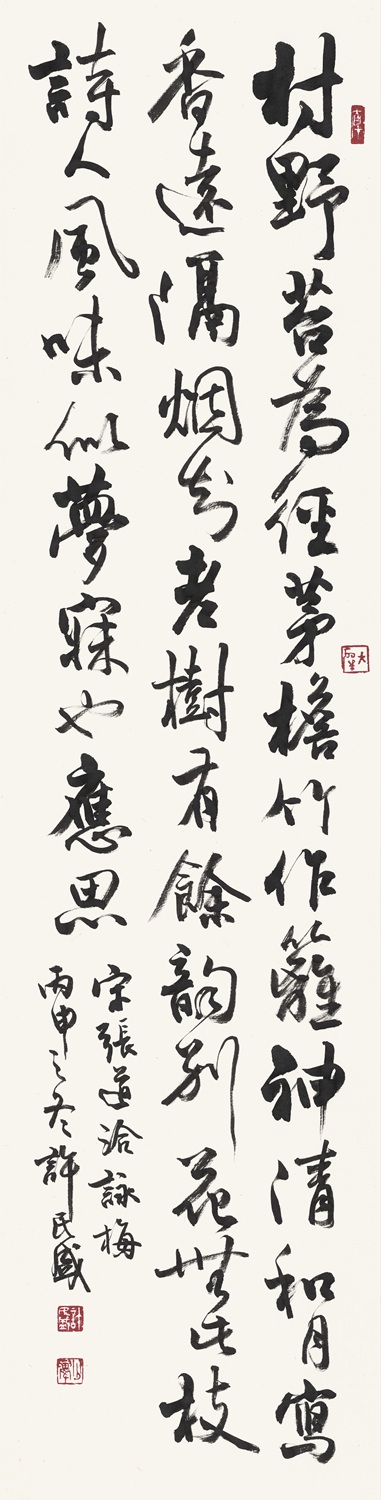 村野苔為徑茅檐竹作籬神清和月寫
香遠隔烟知老樹有餘韵別花無此枝
詩人風味似夢寐也應思
宋張道洽詠梅
丙申之冬許民盛